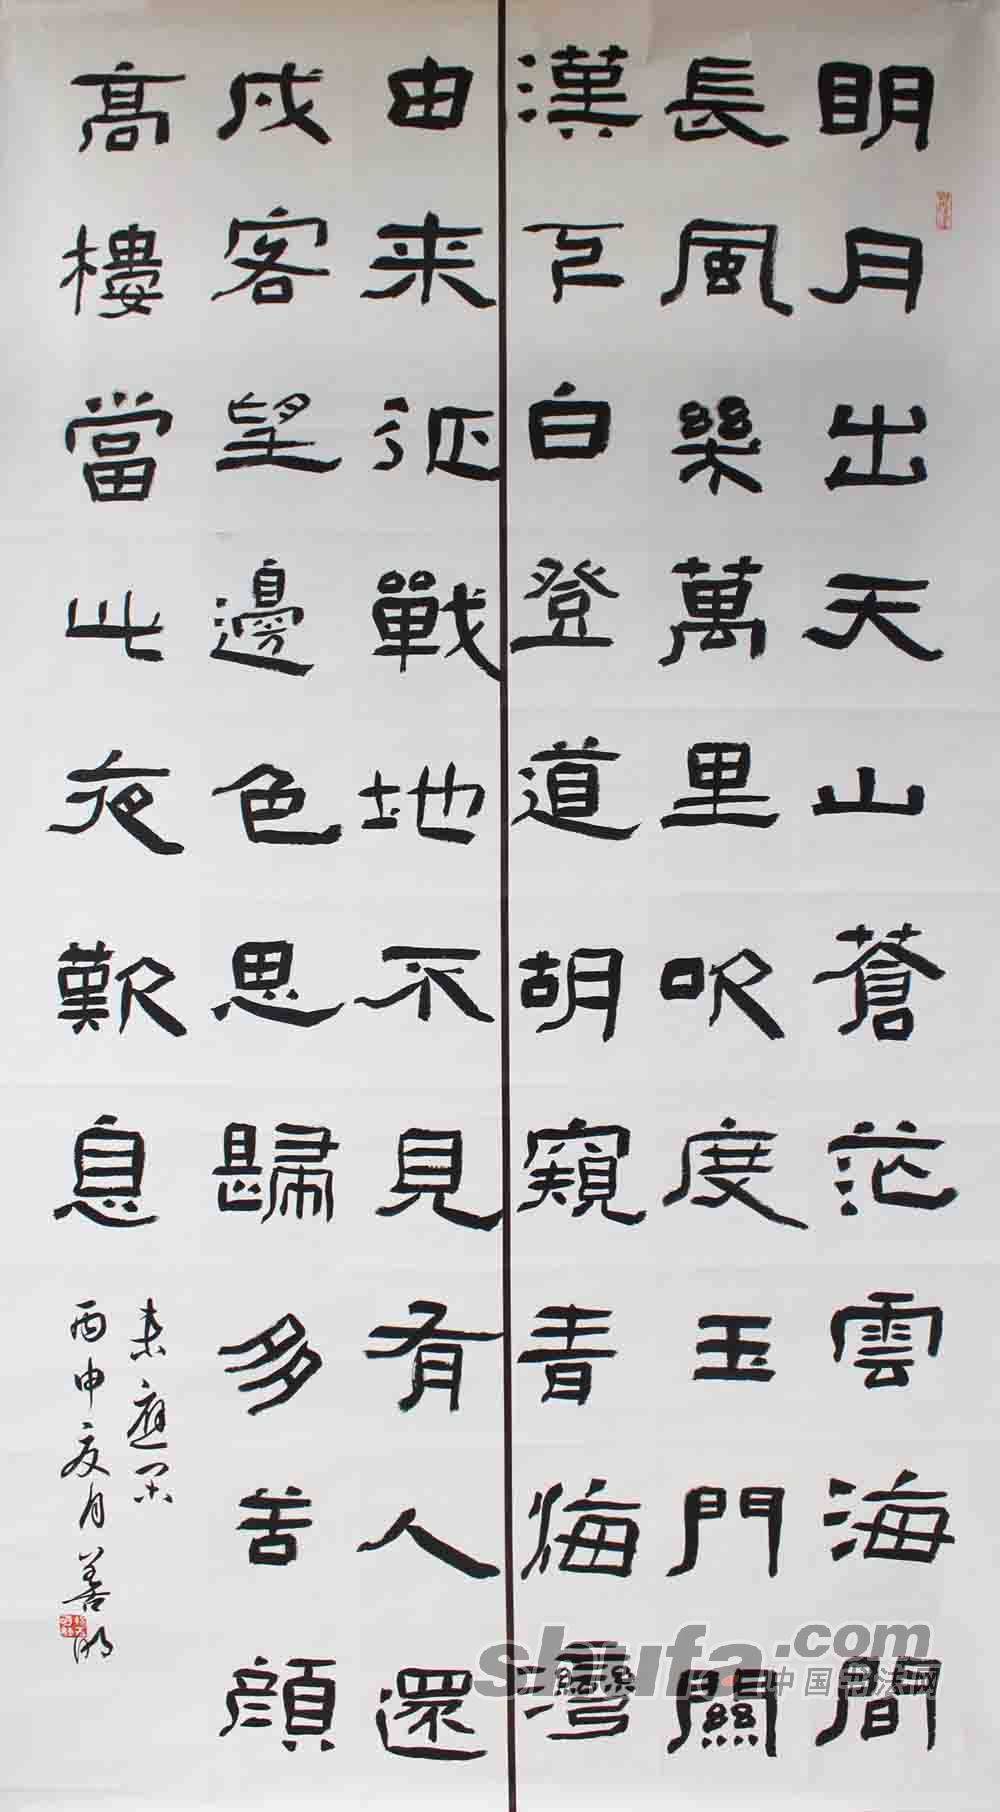 明月出天山蒼茫雲海間
長風樂萬里吹度玉門關
漢下白登道胡窺青悔灣
由来征戰地不見有人還
戍客望邊色思歸多苦顔
高樓當此夜歎息
未應閑
丙申夏月善明
shufa.com
中国书法网